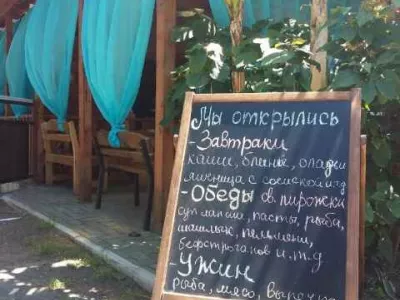 Мы открылись
- Завтраки
каши, блины, оладьи
яичница с сосиской и д
- Обеды св. пирожки
суп лапша, пасты, рыба,
шашлык, пельмени,
бефстроганов и.т.д
- Ужин
рыба, мясо, выпечка